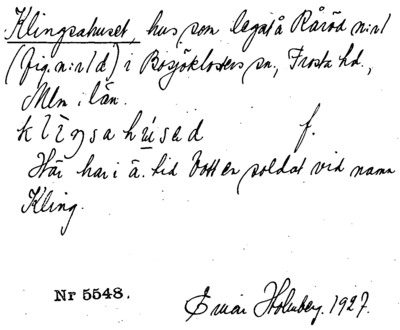 Klingsahuset, hus som legat å Råröd n:r 1
(fig. n:r 1 d) i Bosjöklosters sn., Frosta hd.,
Mlm. i. län.
klingsahúsed f.
Här har i ä. tid bott en soldat vid namn
Kling.
Nr 5548. Einar Holmberg. 1927.